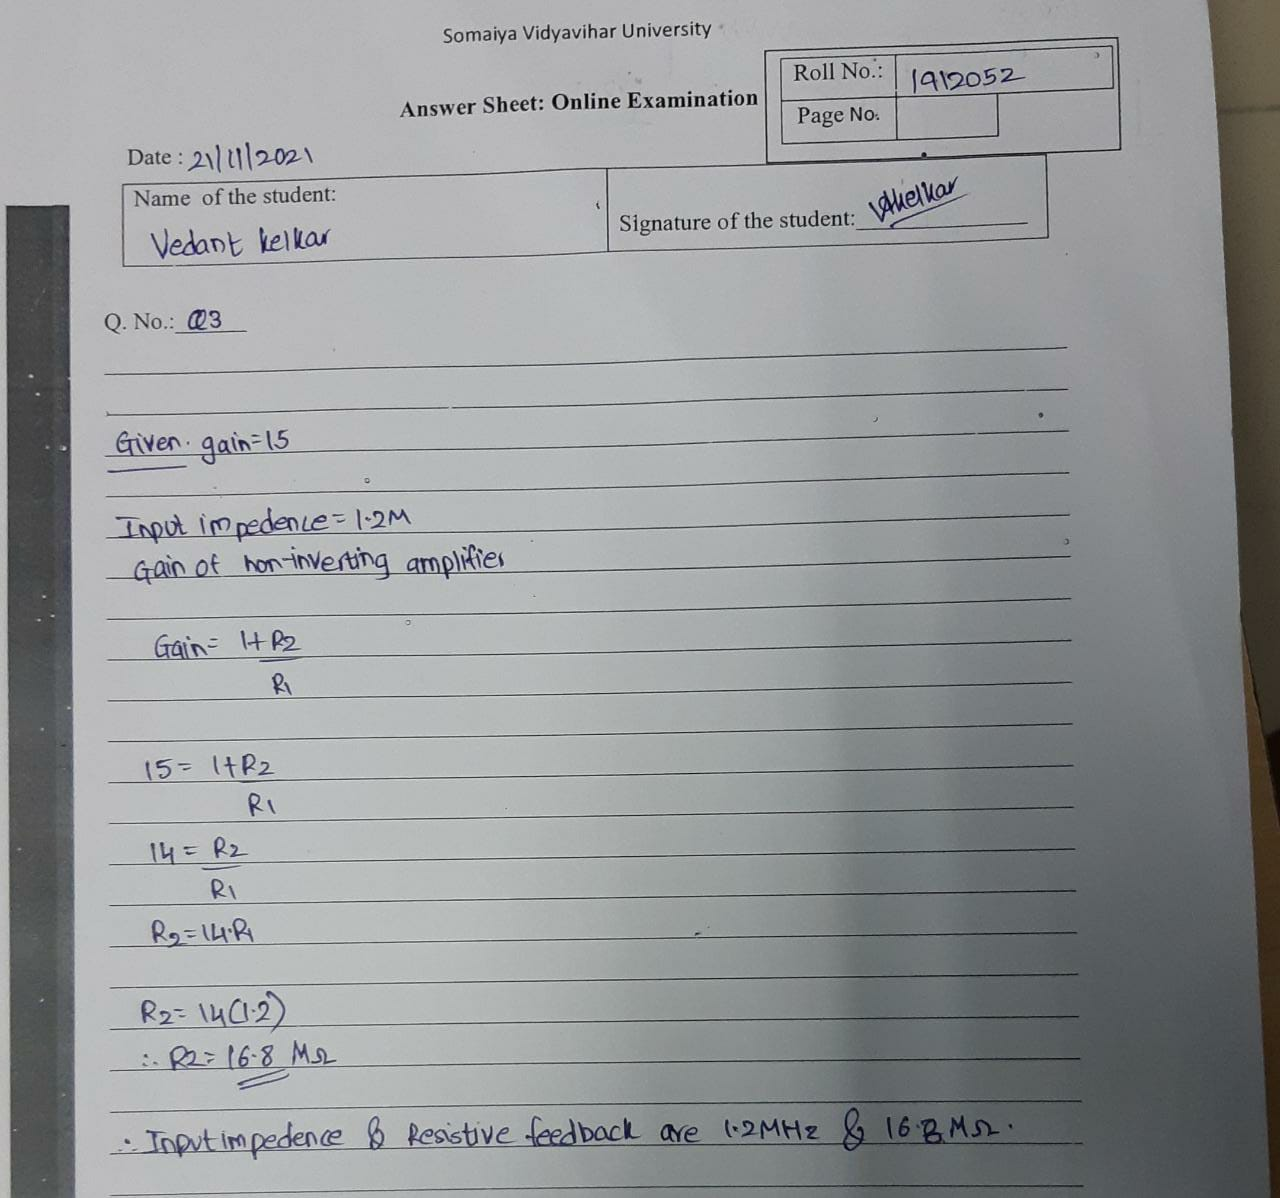 Somaiya Vidyavihar University
Answer Sheet: Online Examination
Roll No.: 1912052
Page No.
Date : 21/11/2021
Name of the student:
Vedant Kelkar
Signature of the student: VAKelkar
Q. No.: Q3
Given. gain=15
Input impedence = 1.2M
Gain of non-inverting amplifier
Gain= 1+ R2
R1
15= 1+R2
R1
14 = R2
R1
R2=14.R1
R2= 14(1.2)
∴ R2= 16.8 MΩ
∴ Input impedence & Resistive feedback are 1.2MHz & 16.8 MΩ.